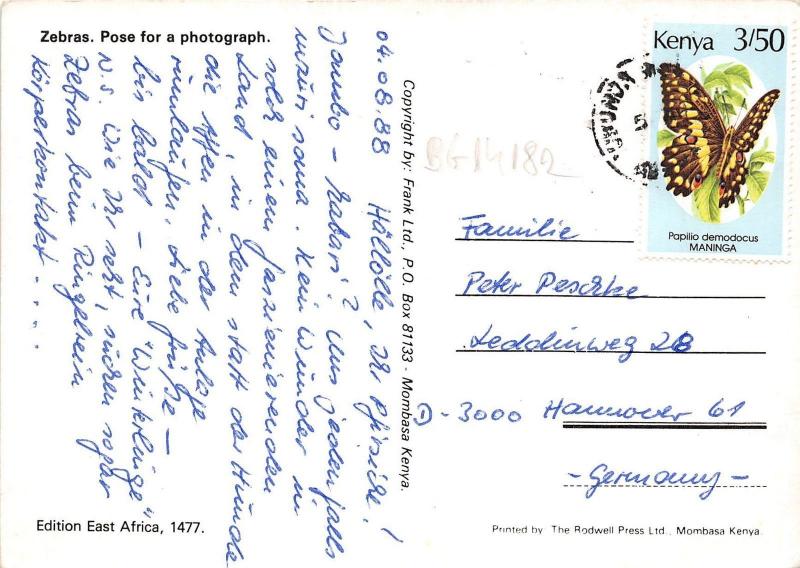 Zebras. Pose for a photograph.
04.08.88 Hällölle, Ihr Pfirsiche!
Jambo - Habari? Uns jedenfalls
mzuri sana. Kein Wunder in
solch einem faszinierenden
Land, in dem statt der Hunde
die Affen in der Anlage
rumlaufen. Liebe Grüße –
bis bald – Eure "Winklinge"
N.S. Wie Ihr seht, suchen sogar
Zebras beim Ringelrein
Körperkontakt . . .
Edition East Africa, 1477.
Copyright by: Frank Ltd., P.O. Box 81133 - Mombasa Kenya.
BG 14182
Kenya 3/50
Papilio demodocus
MANINGA
Familie
Peter Peschke
Leddinweg 28
D - 3000 Hannover 61
- Germany -
Printed by The Rodwell Press Ltd., Mombasa Kenya.